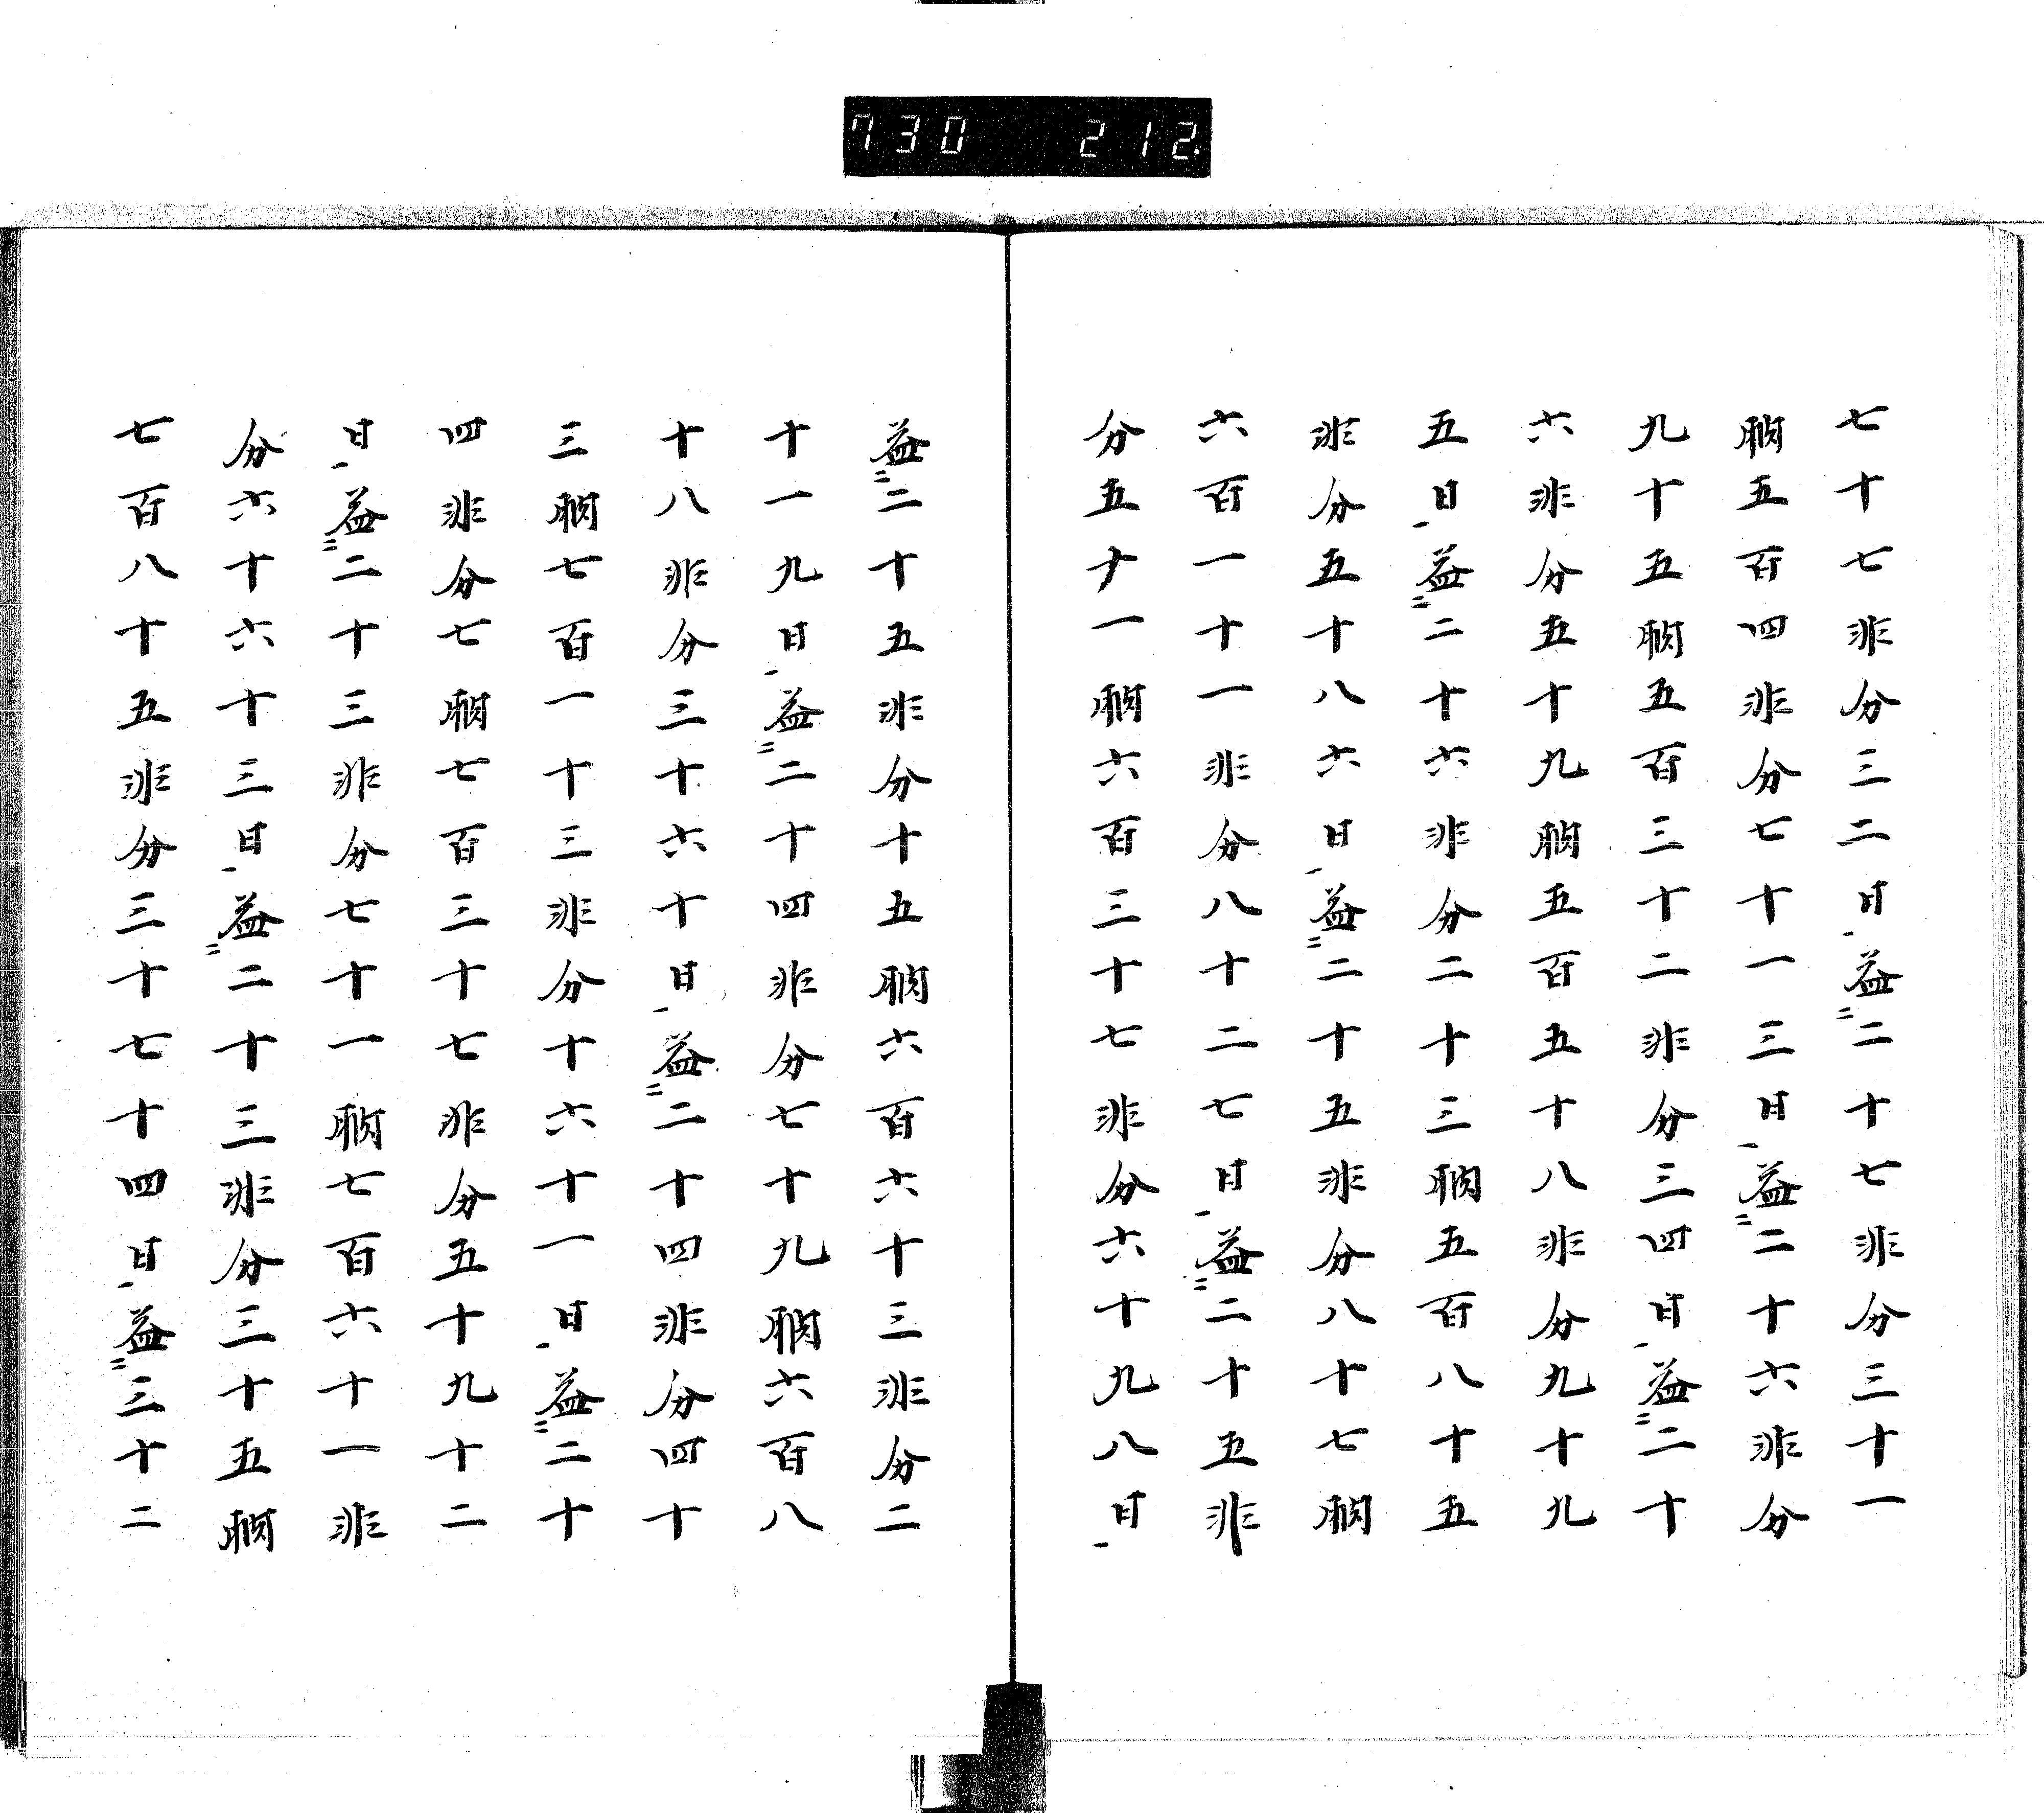 730 212.
七十七非分三二日益二十七非分三十一
朒五百四非分七十一三日益二十六非分
九十五朒五百三十二非分三四日益二十
六非分五十九朒五百五十八非分九十九
五日益二十六非分二十三朒五百八十五
非分五十八六日益二十五非分八十七朒
六百一十一非分八十二七日益二十五非
分五十一朒六百三十七非分六十九八日
益二十五非分十五朒六百六十三非分二
十一九日益二十四非分七十九朒六百八
十八非分三十六十日益二十四非分四十
三朒七百一十三非分十六十一日益二十
四非分七朒七百三十七非分五十九十二
日益二十三非分七十一朒七百六十一非
分六十六十三日益二十三非分三十五朒
七百八十五非分三十七十四日益三十二